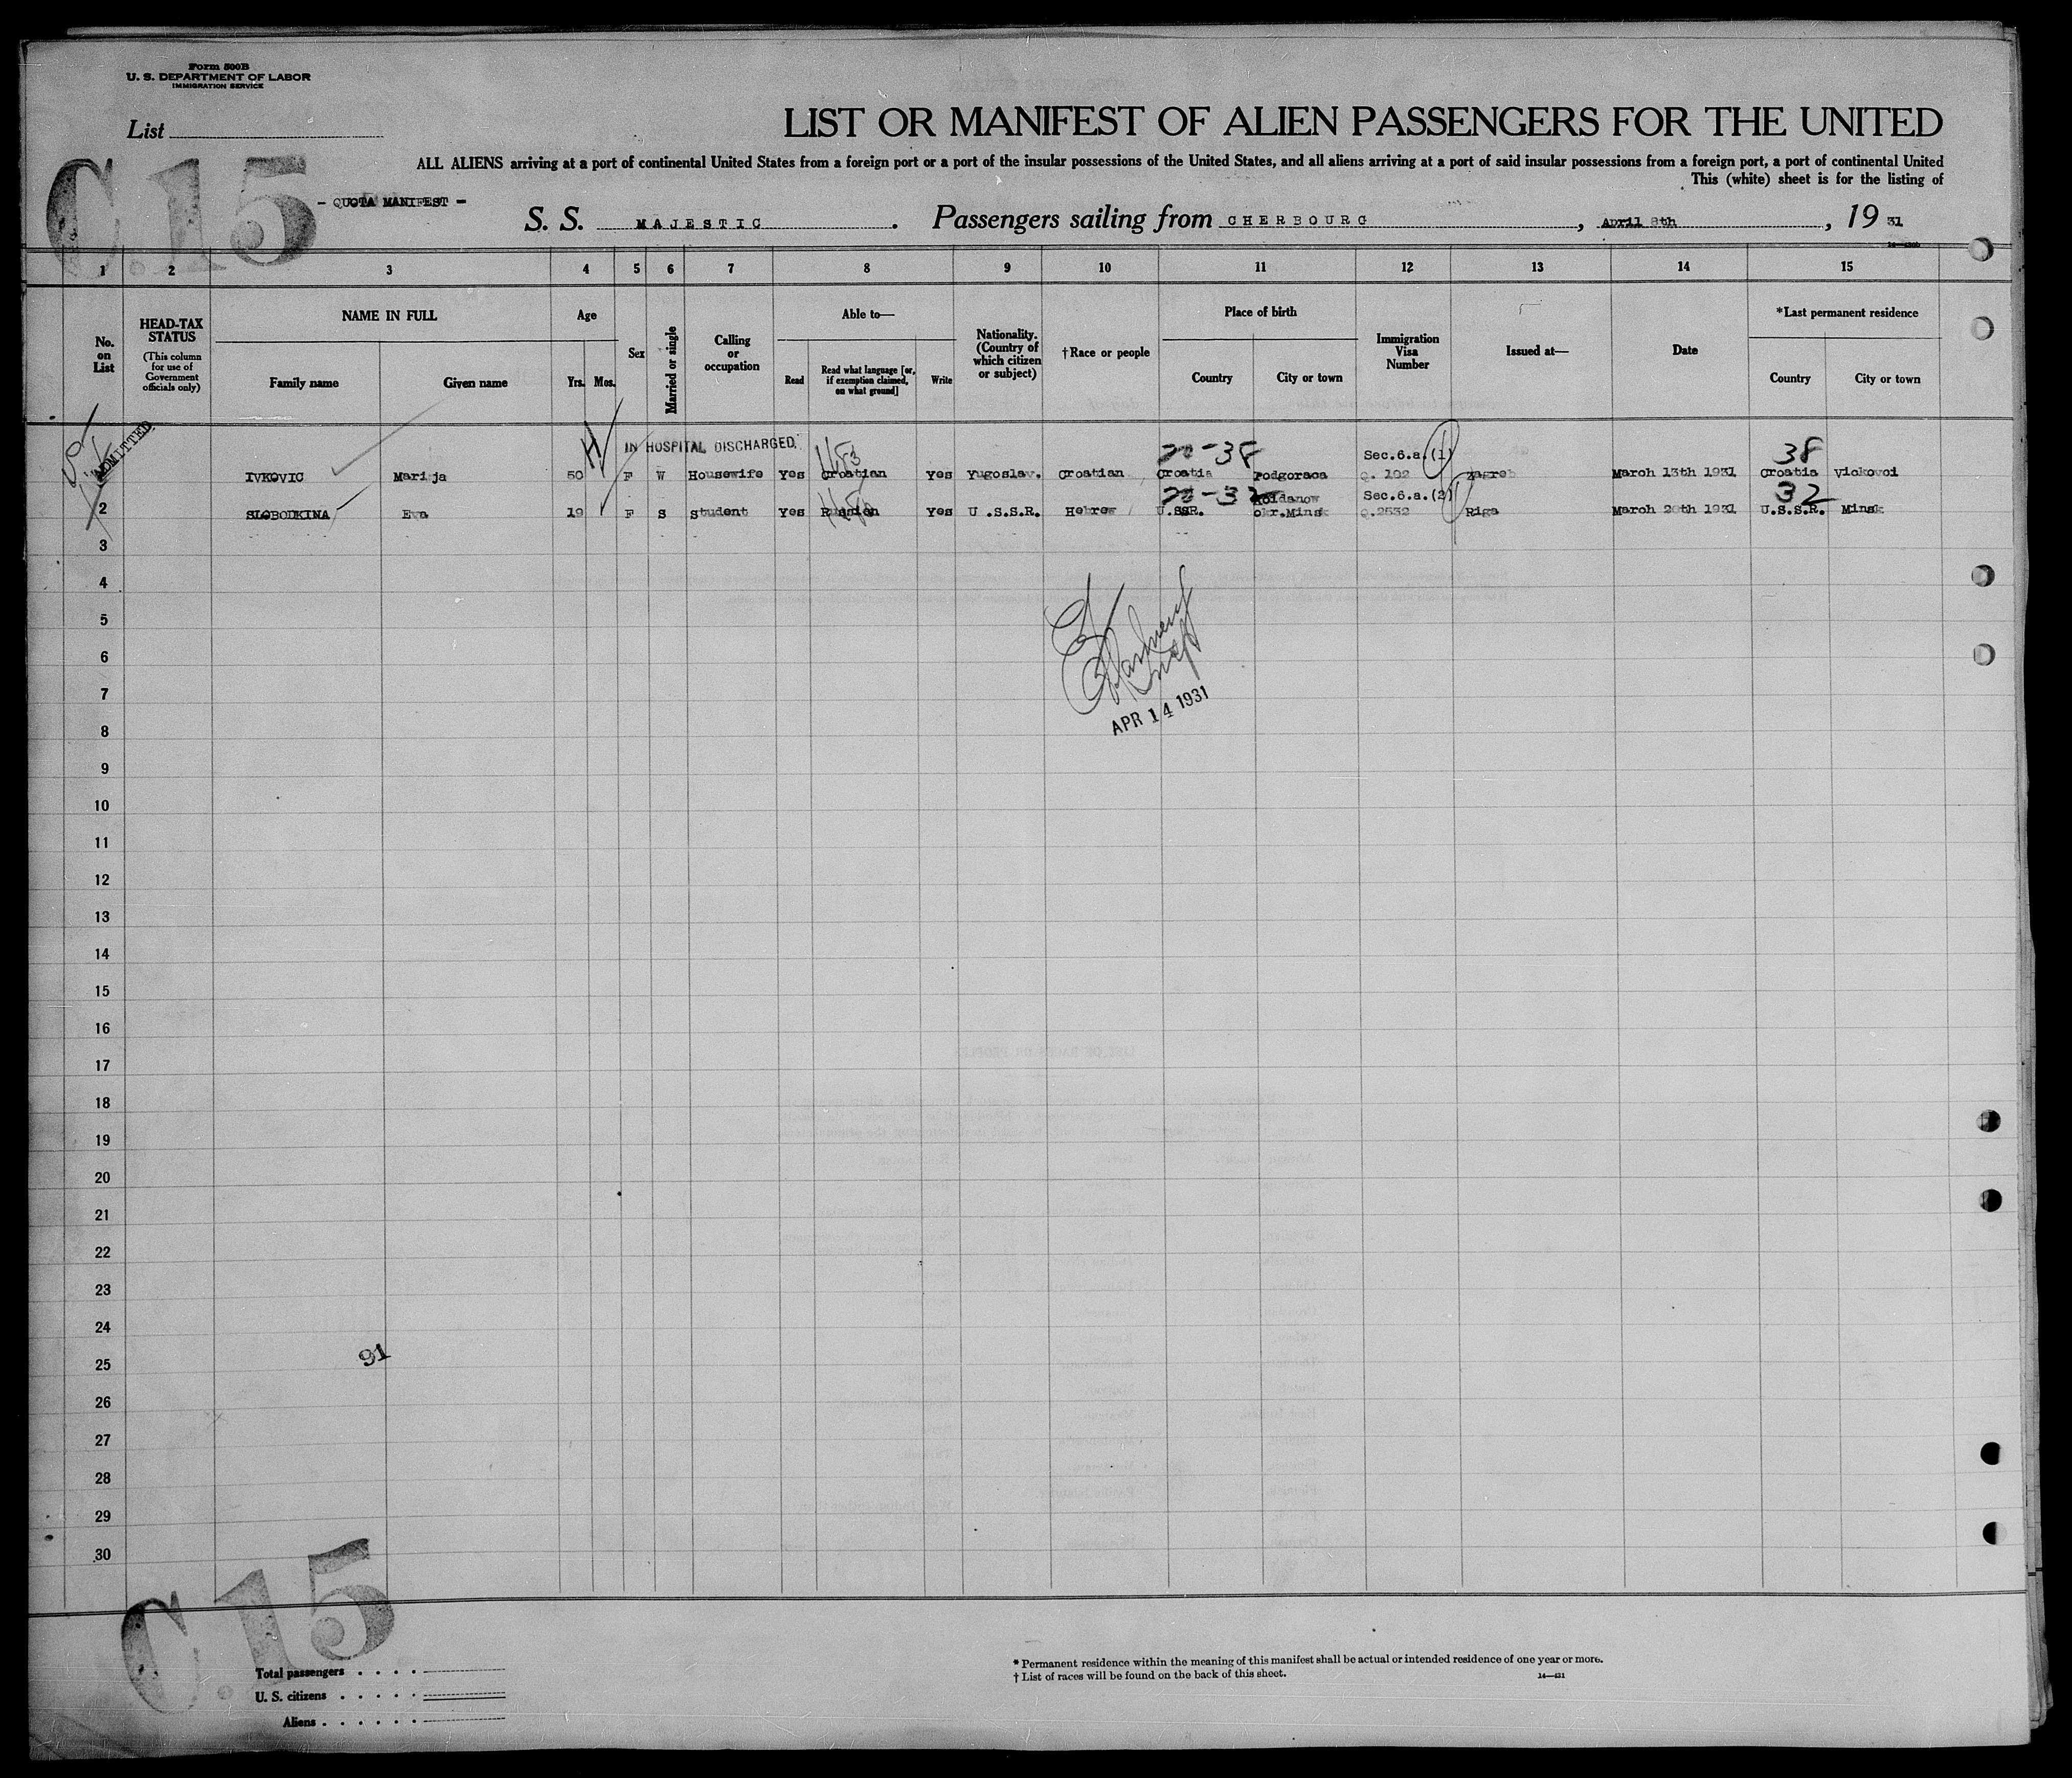 Form 500B
U. S. DEPARTMENT OF LABOR
IMMIGRATION SERVICE
List
LIST OR MANIFEST OF ALIEN PASSENGERS FOR THE UNITED
ALL ALIENS arriving at a port of continental United States from a foreign port or a port of the insular possessions of the United States, and all aliens arriving at a port of said insular possessions from a foreign port, a port of continental United
This (white) sheet is for the listing of
C.15
- QUOTA MANIFEST -
S. S. MAJESTIC. Passengers sailing from CHERBOURG, April 8th, 19 31
1 2 3 4 5 6 7 8 9 10 11 12 13 14 15
No. on List
HEAD-TAX STATUS (This column for use of Government officials only)
NAME IN FULL
Family name Given name
Age
Yrs. Mos.
Sex
Married or single
Calling or occupation
Able to—
Read
Read what language [or, if exemption claimed, on what ground]
Write
Nationality. (Country of which citizen or subject)
†Race or people
Place of birth
Country City or town
Immigration Visa Number
Issued at—
Date
*Last permanent residence
Country City or town
ADMITTED
IN HOSPITAL DISCHARGED.
22-38 Sec.6.a.(1) 38
IVKOVIC Marija 50 F W Housewife Yes Croatian Yes Yugoslav. Croatian Croatia Podgoraca Q. 102 Zagreb March 13th 1931 Croatia
Sec.6.a.(2) 32
2 SLOBODKINA Eva 19 F S Student Yes Russian Yes U.S.S.R. Hebrew U.SSR. okr.Minsk Q.2532 Riga March 20th 1931 U.S.S.R. Minsk
3
4
5
6
7
APR 14 1931
8
9
10
11
12
13
14
15
16
17
18
19
20
21
22
23
24
91
25
26
27
28
29
30
C.15
Total passengers
U. S. citizens
Aliens
* Permanent residence within the meaning of this manifest shall be actual or intended residence of one year or more.
† List of races will be found on the back of this sheet.